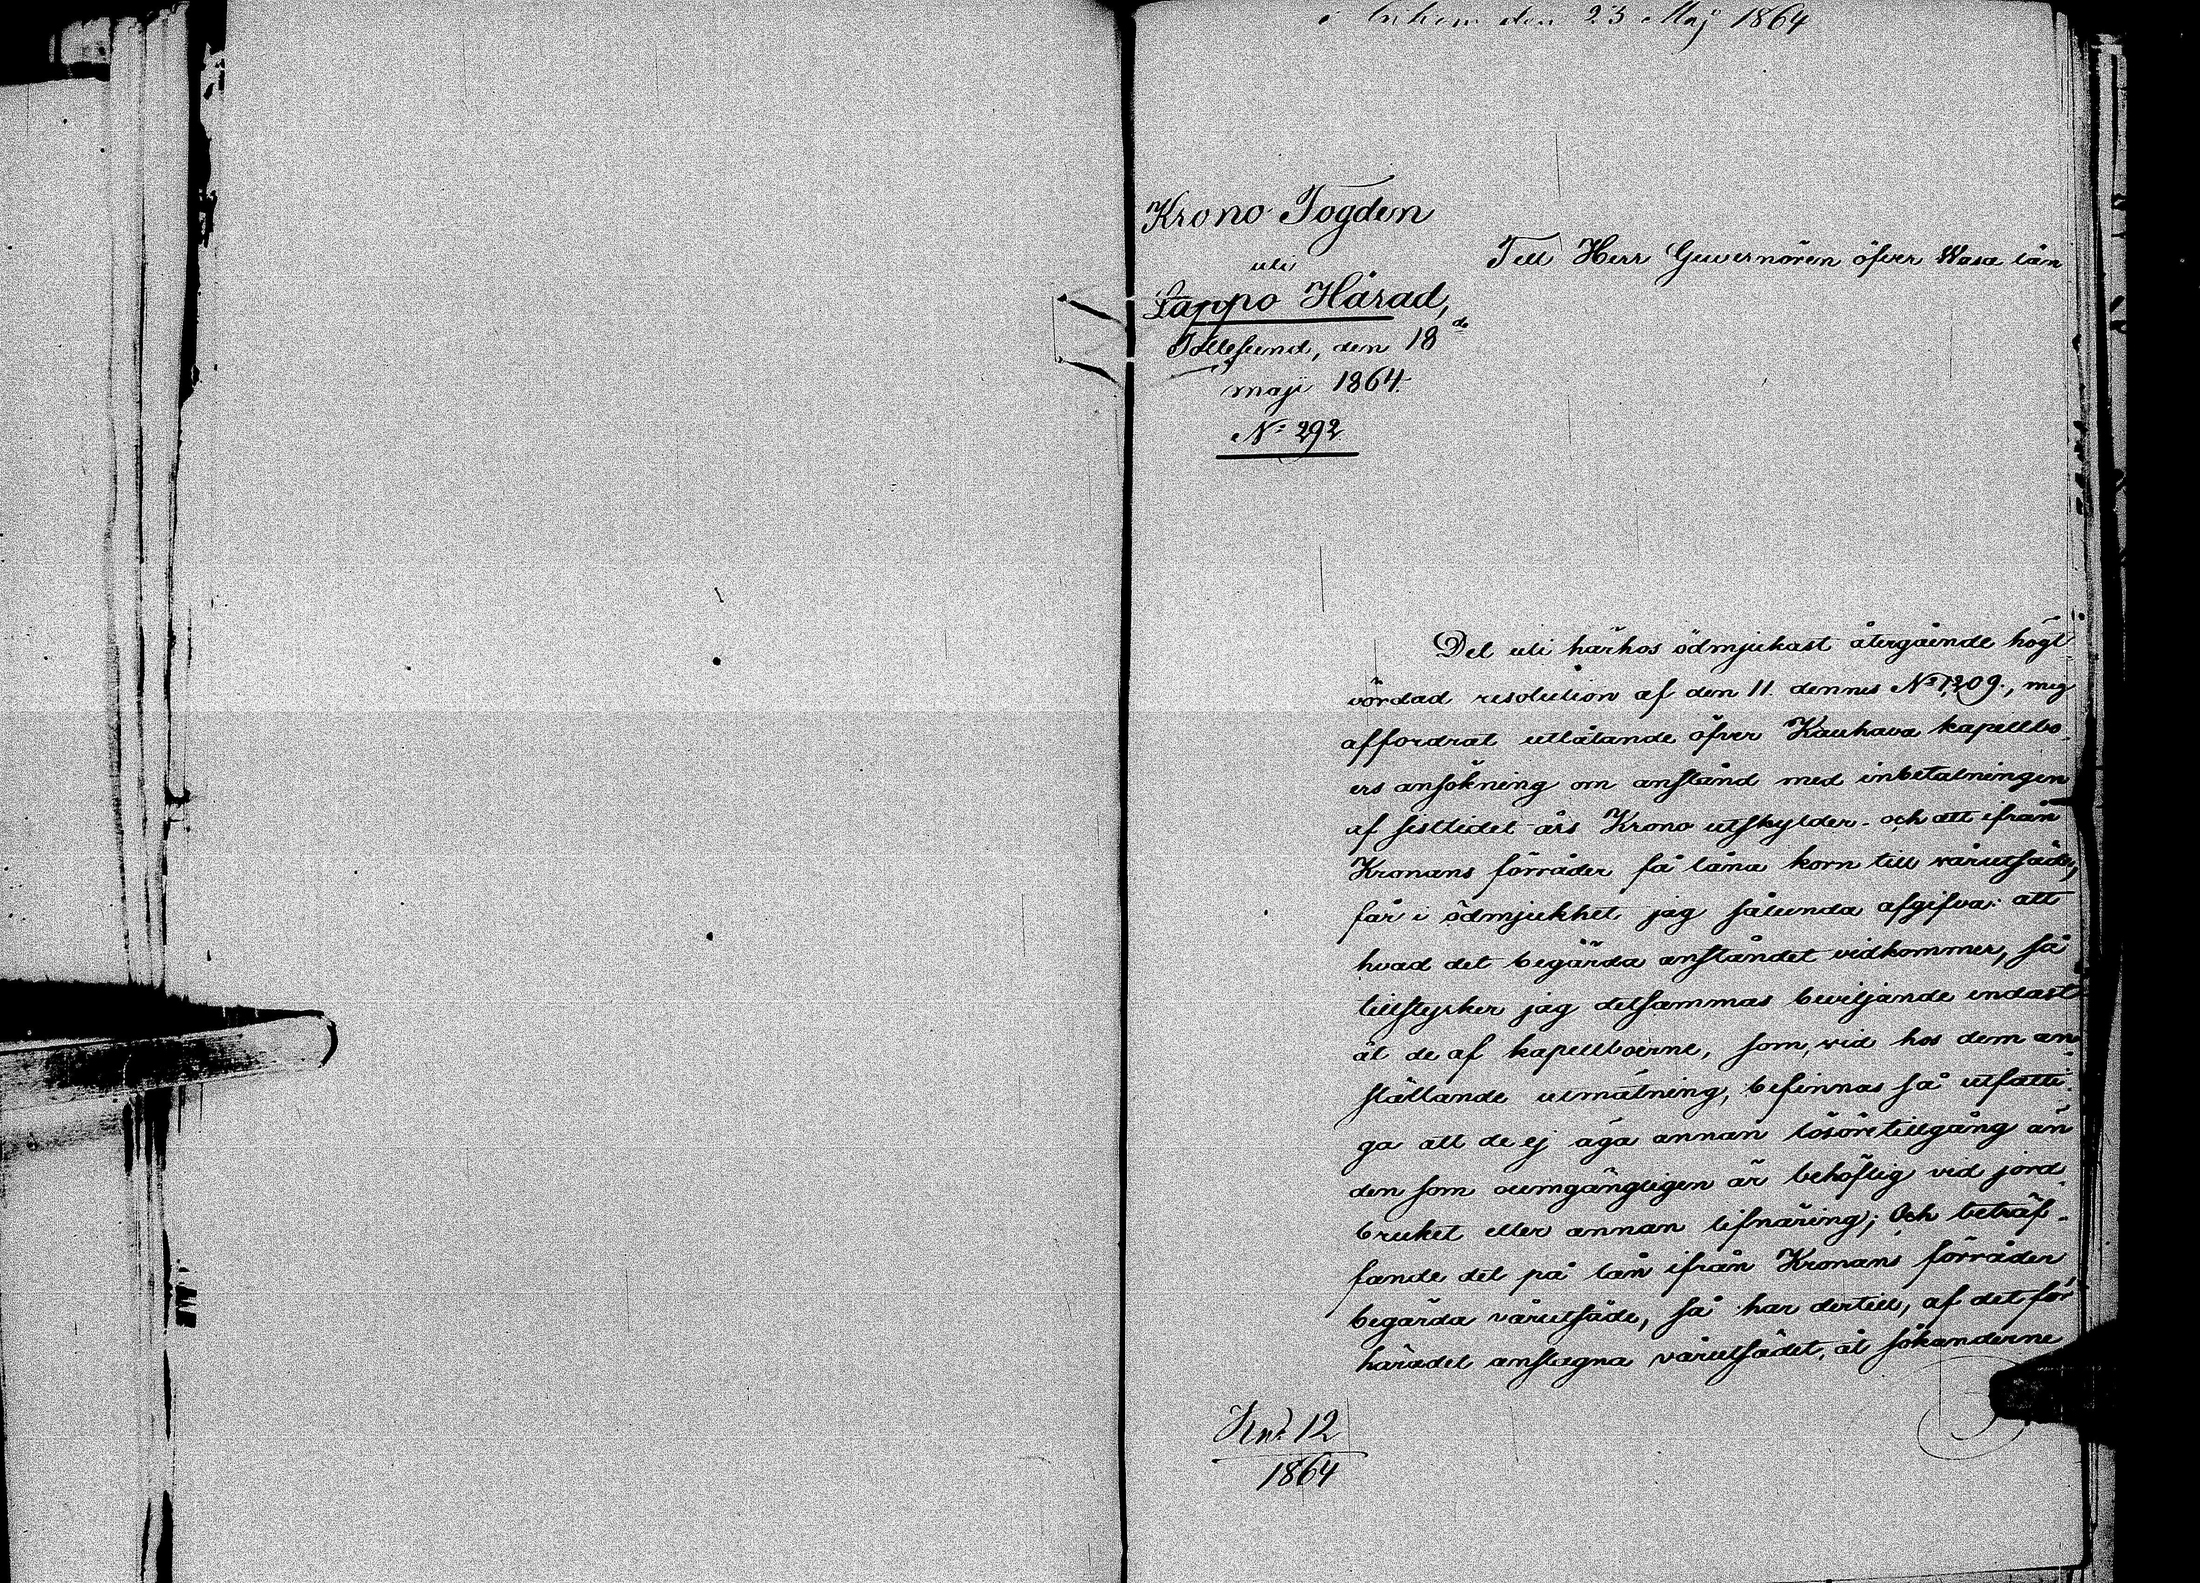 den 23 Maj 1864
Krono Fogden
uti
Lappo Härad,
den 18de
maji 1864.
No 292
Till Herr Guvernören öfver Wasa län
Det uti härhos ödmjukast återgående högt
vördad resolution af den 11. dennes No 1209., mig
affordrat utlåtande öfver Kauhava kapellbo-
ers ansökning om anstånd med inbetalningen
af sistlidet års Krono utskylder och att ifrån
Kronans förråder få låna korn till vårutsäde,
får i ödmjukhet jag sålunda afgifva: att
hvad det begärda anståndet vidkommer, så
tillstyrker jag detsammas beviljande endast
åt de af kapellboerne, som, vid hos dem an-
ställande utmätning, befinnas så utfatti-
ga att de ej äga annan lösöretillgång än
den som oumgängligen är behöflig vid jord-
bruket eller annan lifnäring; Och beträf-
fande det på lån ifrån Kronans förråder
begärda vårutsäde, så har dertill, af det för
häradet anslagna vårutsädet, åt sökanderne
12
1864